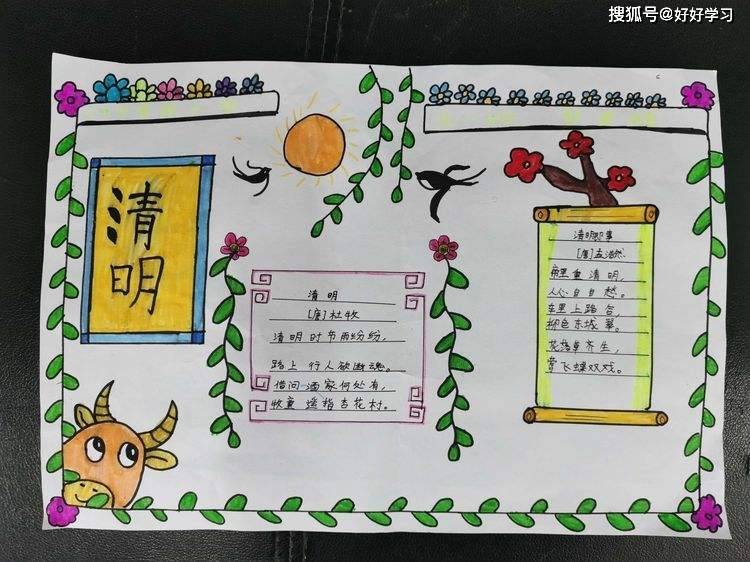 搜狐号@好好学习
清
明
清明
[唐]杜牧
清明时节雨纷纷,
路上行人欲断魂。
借问酒家何处有,
牧童遥指杏花村。
清明即事
[唐]孟浩然
帝里重清明,
人心自自愁。
车里上路合,
柳色东城翠。
花落草齐生,
莺飞蝶双戏。